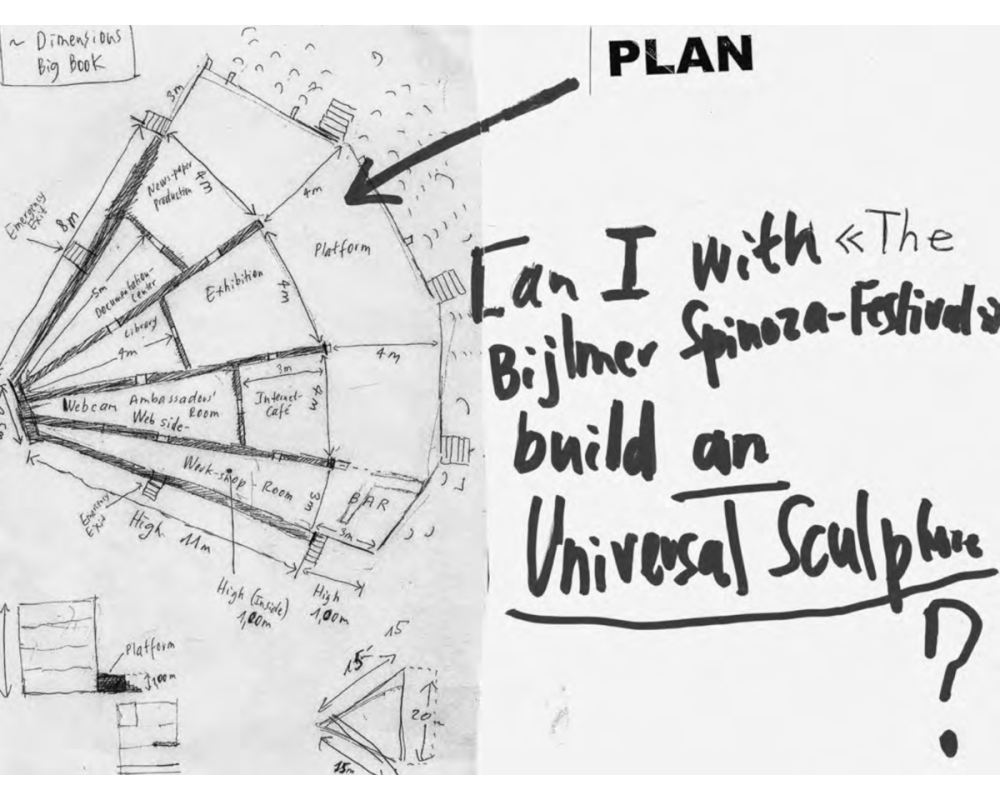 ~ Dimensions
Big Book
PLAN
3m
Newspaper
production
4m
4m
Emergency
Exit
8m
Platform
5m
Documentation-
Center
Exhibition
4m
Library
4m
4m
3m
Webcam Ambassaders'
Web side- Room
Internet-
Café
4m
Work-shop - Room
3m
BAR
3m
Emergency
Exit
High 11m
High (Inside)
1,00m
High
1,00m
Platform
1,00m
15
15
20
15m
Can I with «The
Bijlmer Spinoza-Festival»
build an
Universal Sculpture
?